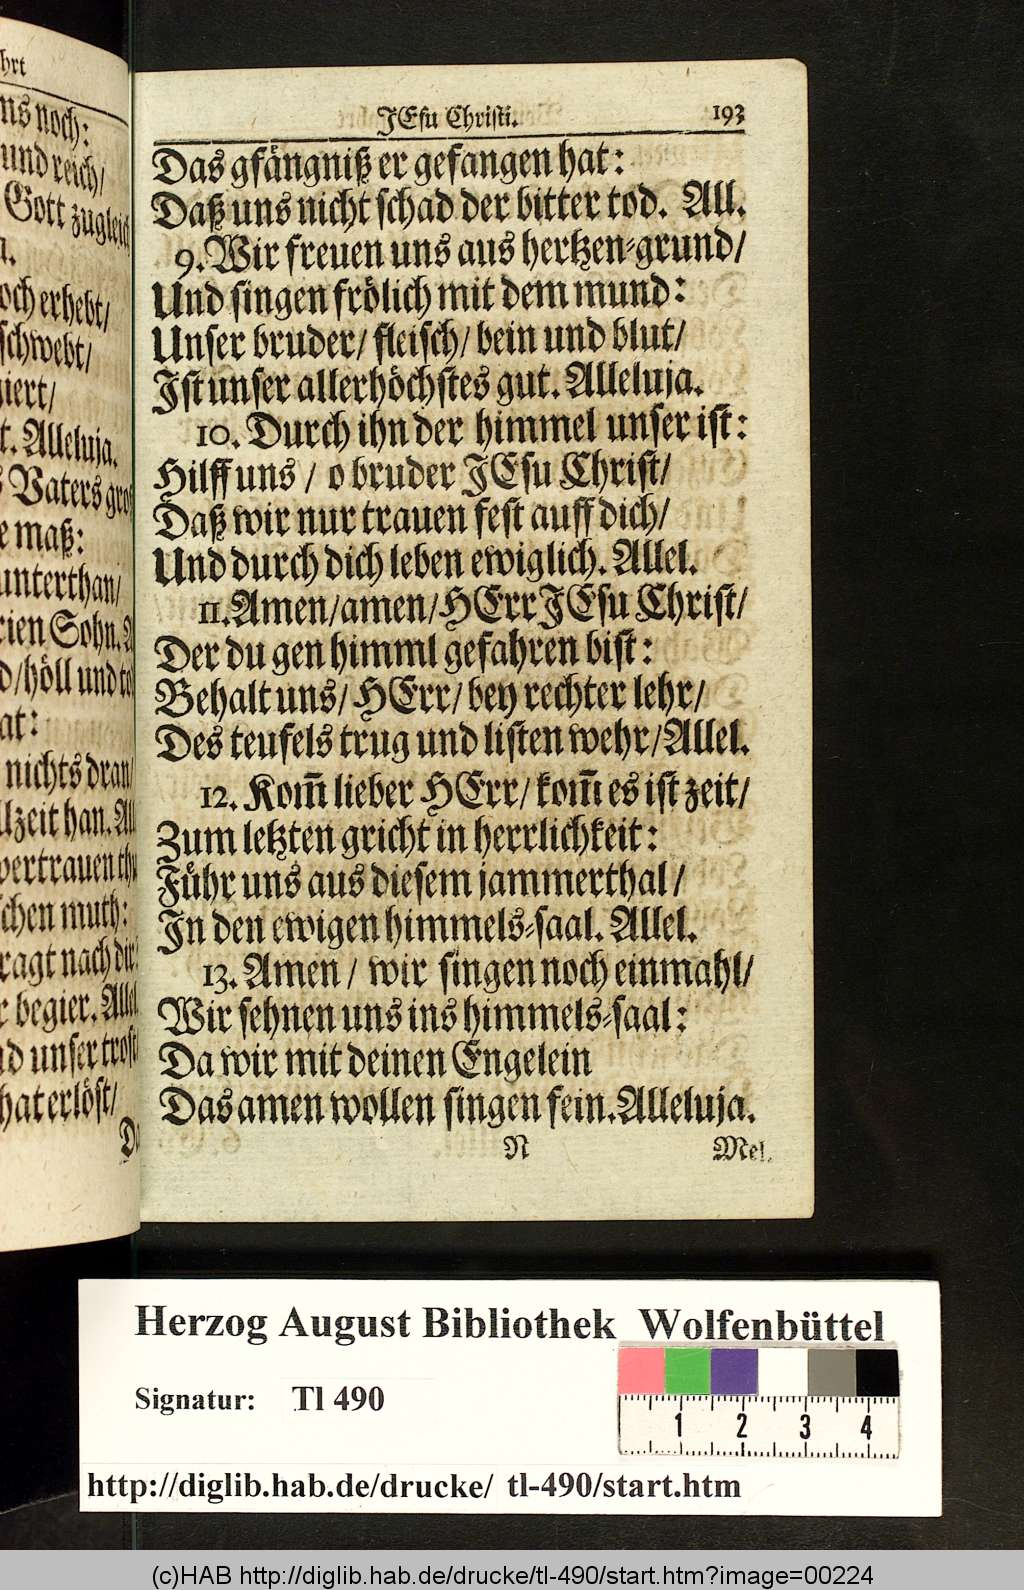 hrt
ns noch:
und reich/
Gott zugleich
n.
och erhebt/
schwebt/
giert/
t. Alleluja.
s Vaters groß
e maß:
unterthan/
rien Sohn. A
d/höll und to
at:
nichts dran/
llzeit han. All
vertrauen thu
schen muth:
ragt nach dir
r begier. Allel
nd unser trost
hat erlöst/
Da
JEsu Christi. 193
Das gfängniß er gefangen hat:
Daß uns nicht schad der bitter tod. All.
9. Wir freuen uns aus hertzen-grund/
Und singen frölich mit dem mund:
Unser bruder/ fleisch/ bein und blut/
Ist unser allerhöchstes gut. Alleluja.
10. Durch ihn der himmel unser ist:
Hilff uns / o bruder JEsu Christ/
Daß wir nur trauen fest auff dich/
Und durch dich leben ewiglich. Allel.
11. Amen/amen/HErr JEsu Christ/
Der du gen himml gefahren bist:
Behalt uns/ HErr/ bey rechter lehr/
Des teufels trug und listen wehr/Allel.
12. Kom̃ lieber HErr/ kom̃ es ist zeit/
Zum letzten gricht in herrlichkeit:
Führ uns aus diesem jammerthal /
In den ewigen himmels-saal. Allel.
13. Amen / wir singen noch einmahl/
Wir sehnen uns ins himmels-saal:
Da wir mit deinen Engelein
Das amen wollen singen fein. Alleluja.
N Mel.
Herzog August Bibliothek Wolfenbüttel
Signatur: Tl 490
1 2 3 4
http://diglib.hab.de/drucke/ tl-490/start.htm
(c)HAB http://diglib.hab.de/drucke/tl-490/start.htm?image=00224